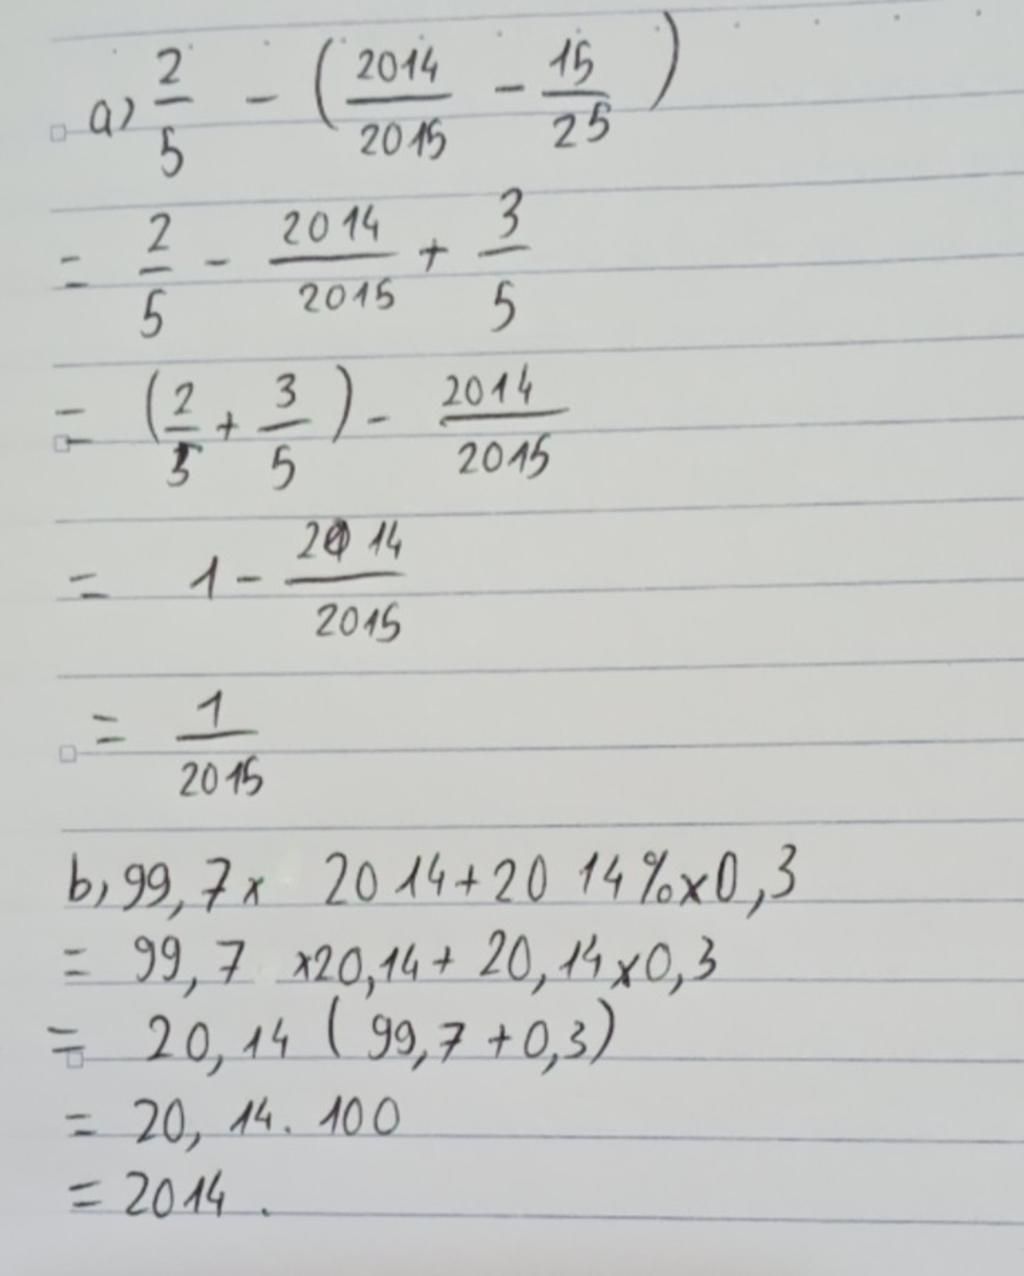 a) 2/5 - (2014/2015 - 15/25)
= 2/5 - 2014/2015 + 3/5
= (2/5 + 3/5) - 2014/2015
= 1 - 2014/2015
= 1/2015
b, 99,7 x 2014 + 2014% x 0,3
= 99,7 x 20,14 + 20,14 x 0,3
= 20,14 (99,7 + 0,3)
= 20,14 . 100
= 2014.